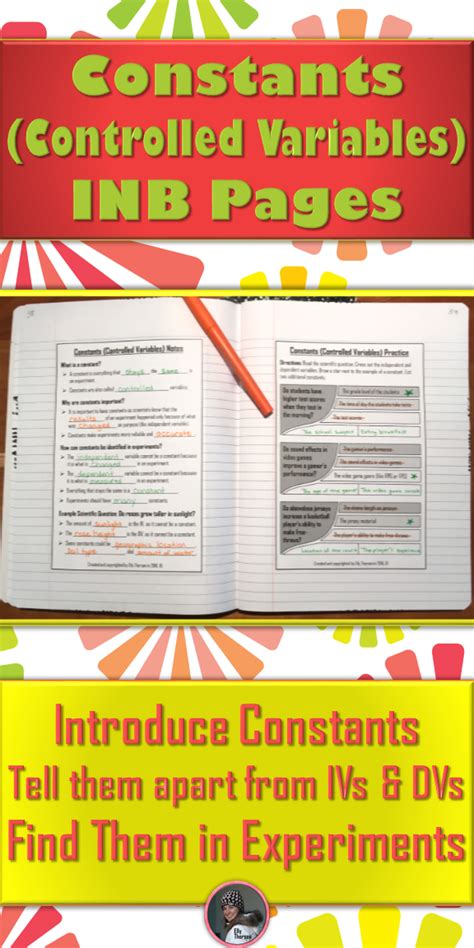 Constants
(Controlled Variables)
INB Pages
Constants (Controlled Variables) Notes
What is a constant?
A constant is everything that stays the same in
an experiment.
Constants are also called controlled variables.
Why are constants important?
It is important to have constants so scientists know that the
results of an experiment happened only because of
what was changed on purpose (the independent variable).
Constants make experiments more reliable and accurate.
How can constants be identified in experiments?
The independent variable cannot be a constant because
it is what is changed in an experiment.
The dependent variable cannot be a constant because
it is what is measured in an experiment.
Everything that stays the same is a constant
Experiments should have many constants.
Example Scientific Question: Do roses grow taller in sunlight?
The amount of sunlight is the IV, so it cannot be a constant.
The rose height is the DV, so it cannot be a constant.
Some constants could be geographic location
soil type and amount of water
Constants (Controlled Variables) Practice
Directions: Read the scientific question. Cross out the independent and
dependent variables. Draw a star next to the example of a constant. List
two additional constants.
Do students have
higher test scores
when they test in
the morning?
The grade level of the students
The time of day the students take tests
The test scores
The school subject
Eating breakfast
Do sound effects in
video games
improve a gamer's
performance?
The gamer's performance
The sound effects in video games
The age of the gamer
The video game
Do sleeveless jerseys
increase a basketball
player's ability to
make free
throws?
The sleeve length on jerseys
The jersey material
The player's ability to make free throws
Location of the court
The player's experience
Introduce Constants
Tell them apart from IVs & DVs
Find Them in Experiments
Elly
Thorsen